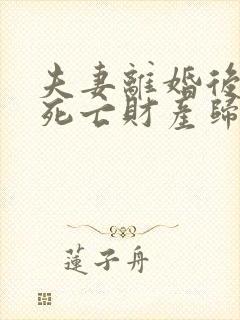 夫妻離婚後
死亡財產歸
蓮子舟